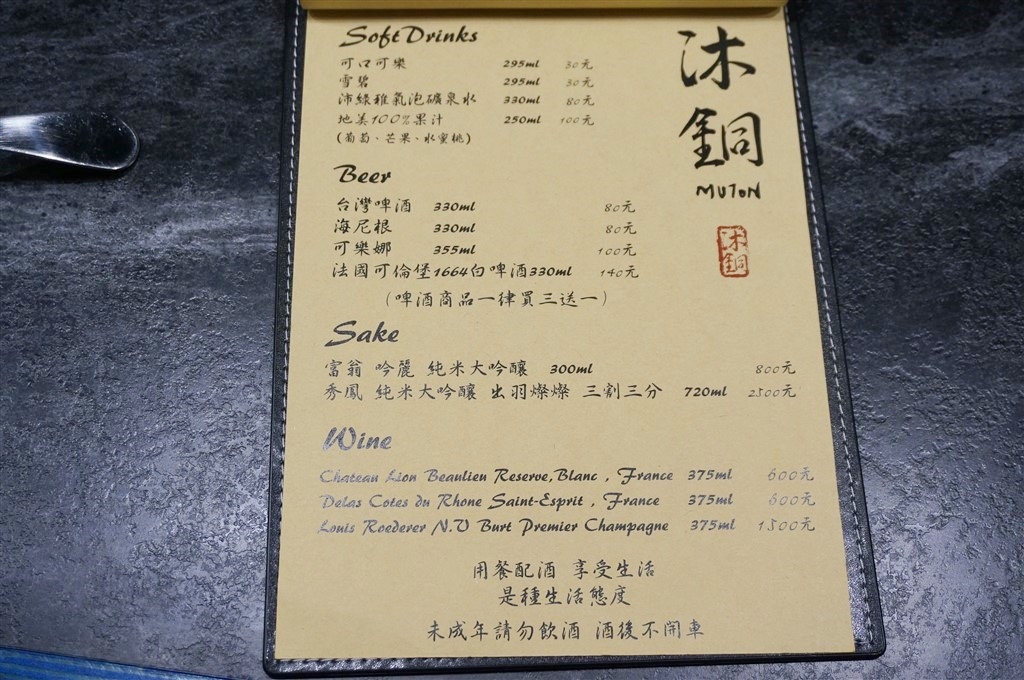 Soft Drinks
可口可樂 295ml 30元
雪碧 295ml 30元
沛綠雅氣泡礦泉水 330ml 80元
地美100%果汁 250ml 100元
(葡萄、芒果、水蜜桃)
Beer
台灣啤酒 330ml 80元
海尼根 330ml 80元
可樂娜 355ml 100元
法國可倫堡1664白啤酒330ml 140元
(啤酒商品一律買三送一)
Sake
富翁 吟麗 純米大吟釀 300ml 800元
秀鳳 純米大吟釀 出羽燦燦 三割三分 720ml 2500元
Wine
Chateau Lion Beaulieu Reserve,Blanc , France 375ml 600元
Delas Cotes du Rhone Saint-Esprit , France 375ml 600元
Louis Roederer N.V Burt Premier Champagne 375ml 1500元
用餐配酒 享受生活
是種生活態度
未成年請勿飲酒 酒後不開車
沐銅
MUTON
沐銅